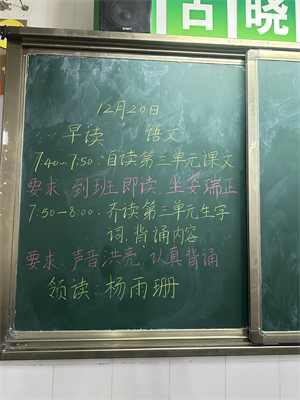 古 晓
12月20日
早读 语文
7:40-7:50:自读第三单元课文
要求:到班即读,坐姿端正
7:50-8:00:齐读第三单元生字
词,背诵内容
要求:声音洪亮,认真背诵
领读:杨雨珊